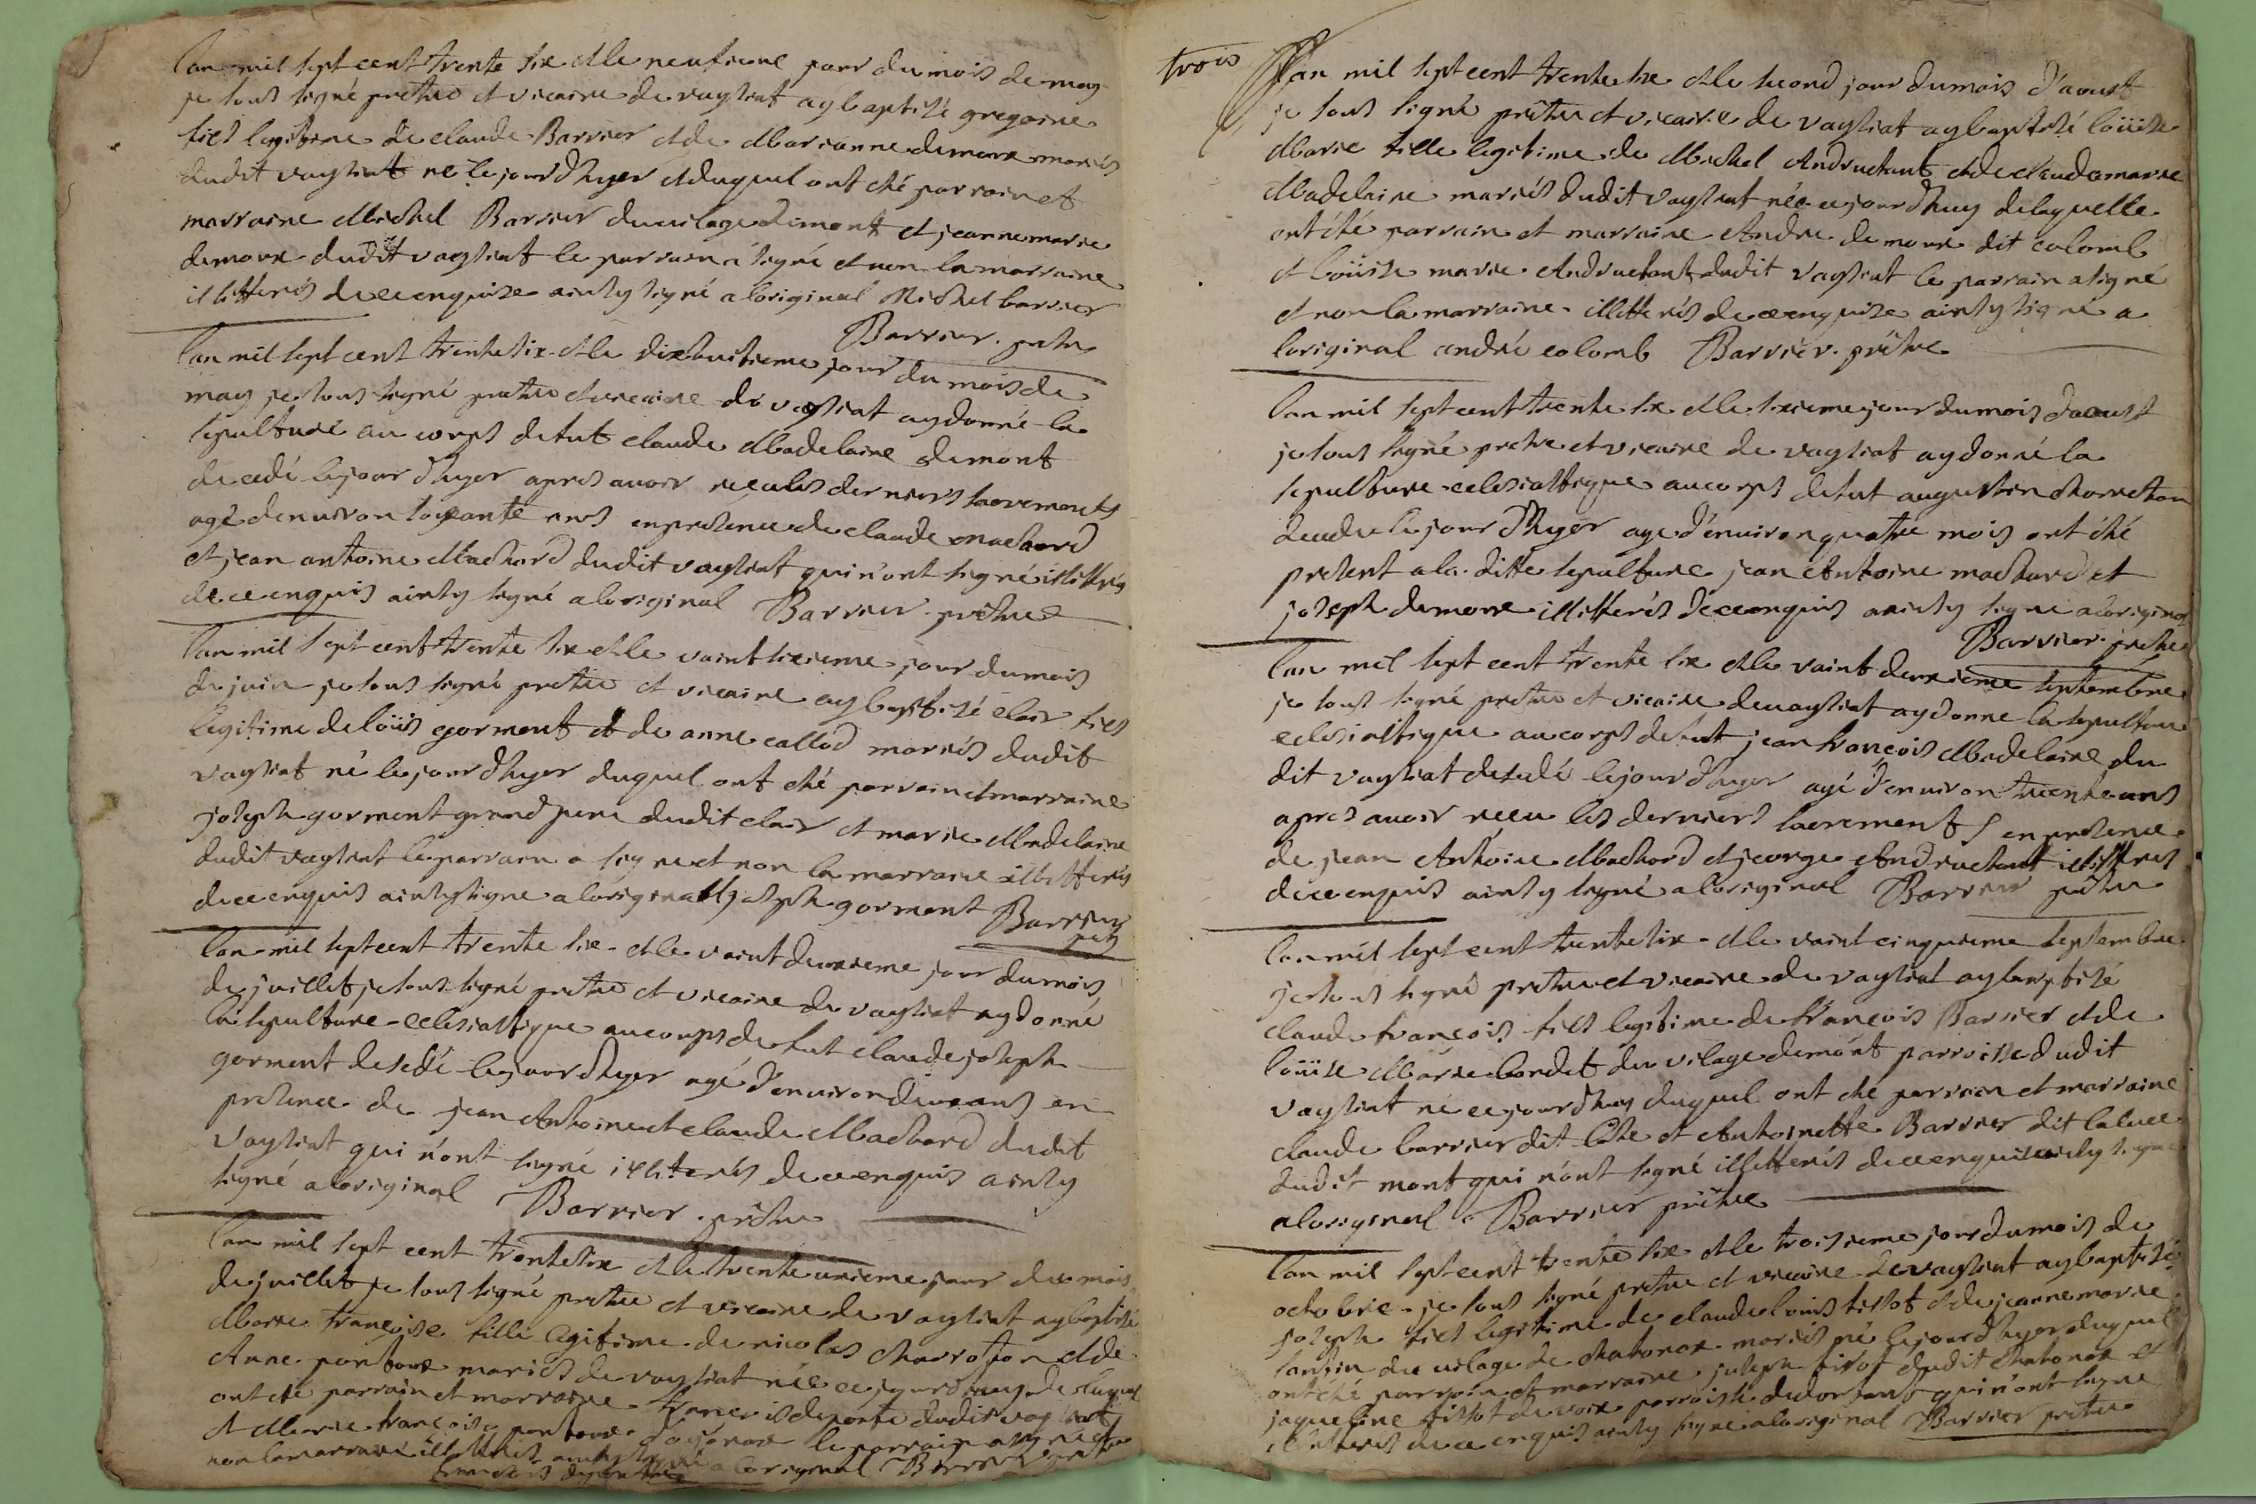 Lan mil sept cent trente six et le neufieme jour du mois de may
je sous signé prêtre et vicaire de vaysiat ay baptisé gregoire
fils legitime de claude Barrier et de Marianne demoux mariés
dudit vaysiat né le jour dhyer et duquel ont été parrain et
marraine Michel Barrier du vilage demont et jeanne marie
demoux dudit vaysiat le parrain a signé et non la marraine
illitterés de ce enquise ainsy signé a loriginal Michel barrier
Barrier. prêtre
Lan mil sept cent trente six et le dixhuitieme jour du mois de
may je sous signé prêtre et vicaire de vaysiat ay donné la
sepulture au corps de fut claude Madelaine demont
decedé le jour dhyer apres avoir reçu les derniers sacrements
agé denviron soixante ans en presence de claude machard
et jean antoine Machard dudit vaysiat qui n'ont signé illitterés
de ce enquis ainsy signé a loriginal Barrier. prêtre
Lan mil sept cent trente six et le vaint sixieme jour du mois
de juin je sous signé prêtre et vicaire ay baptisé clair fils
legitime de loüis gorment et de anne callod mariés dudit
vaysiat né le jour dhyer duquel ont été parrain et marraine
joseph gorment grand pere dudit clair et marie Madelaine
dudit vaysiat le parrain a signé et non la marraine illitterés
de ce enquis ainsy signe a loriginal joseph gorment Barrier
ptre
Lan mil sept cent trente six et le vaint deuxieme jour du mois
de juillet je sous signé prêtre et vicaire de vaysiat ay donné
la sepulture ecclesiastique au corps de fut claude joseph
gorment desedé le jour dhyer agé d'environ dix ans en
presence de jean Antoine et claude Machard dudit
vaysiat qui n'ont signé illiterés de ce enquis ainsy
signé a loriginal Barrier. prêtre
Lan mil sept cent trente six et le trente unieme jour du mois
de juillet je sous signé prêtre et vicaire de vaysiat ay baptisé
Marie françoise fille legitime de nicolas charroton et de
Anne pontoux mariés de vaysiat née ce jourdhuy de laquel
ont été parrain et marraine françois deporte dudit vaysiat
et Marie françoise pontoux le parrain a signé et
non la marraine illitterés ainsy signé a loriginal Barrier prêtre
françois deporte
trois
Lan mil sept cent trente six et le second jour du mois d'aoust
je sous signé prêtre et vicaire de vaysiat ay baptisé loüise
Marie fille legitime de Michel Andruetant et de clauda marie
Madelaine mariés dudit vaysiat née ce jourdhuy de laquelle
ont été parrain et marraine Andre demoux dit colomb
et loüise marie Andruetant dudit vaysiat le parrain a signé
et non la marraine illitterés de ce enquise ainsy signé a
loriginal andré colomb Barrier. prêtre
Lan mil sept cent trente six et le sixieme jour du mois daoust
je sous signé prêtre et vicaire de vaysiat ay donné la
sepulture ecclesiastique au corps de fut augustin charroton
decedé le jour dhyer age d'environ quatre mois ont été
present a la ditte sepulture jean Antoine machard et
joseph demoux illitterés de ce enquis ainsy signe a loriginal
Barrier. prêtre
Lan mil sept cent trente six et le vaint deuxieme septembre
je sous signé prêtre et vicaire de vaysiat ay donne la sepulture
eclesiastique au corps de fut jean françois Madelaine du
dit vaysiat desedé le jour dhyer agé d'environ trente ans
apres avoir reçu les derniers sacrements en presence
de jean Antoine Machard et jeorge Andruetant illitterés
de ce enquis ainsy signé a loriginal Barrier prêtre
Lan mil sept cent trente six et le vaint cinquieme septembre
je sous signé prêtre et vicaire de vaysiat ay baptisé
claude françois fils legitime de françois Barrier et de
loüise Marie bondet du vilage demont parroisse dudit
vaysiat né ce jourdhuy duquel ont été parrain et marraine
claude barrier dit late et Antoinette Barrier dit laluce
dudit mont qui n'ont signé illitterés de ce enquis ainsy signe
a loriginal Barrier prêtre
Lan mil sept cent trente six et le troisieme jour du mois de
octobre je sous signé prêtre et vicaire de vaysiat ay baptisé
joseph fils legitime de claude louis tissot et de jeanne marie
lansin du vilage de chatonax mariés né le jour dhyer duquel
ont été parrain et marraine joseph tissot dudit chatonax et
jaqueline tissot de voix parroisse de dortans qui n'ont signe
illitterés de ce enquis ainsy signe a loriginal Barrier prêtre